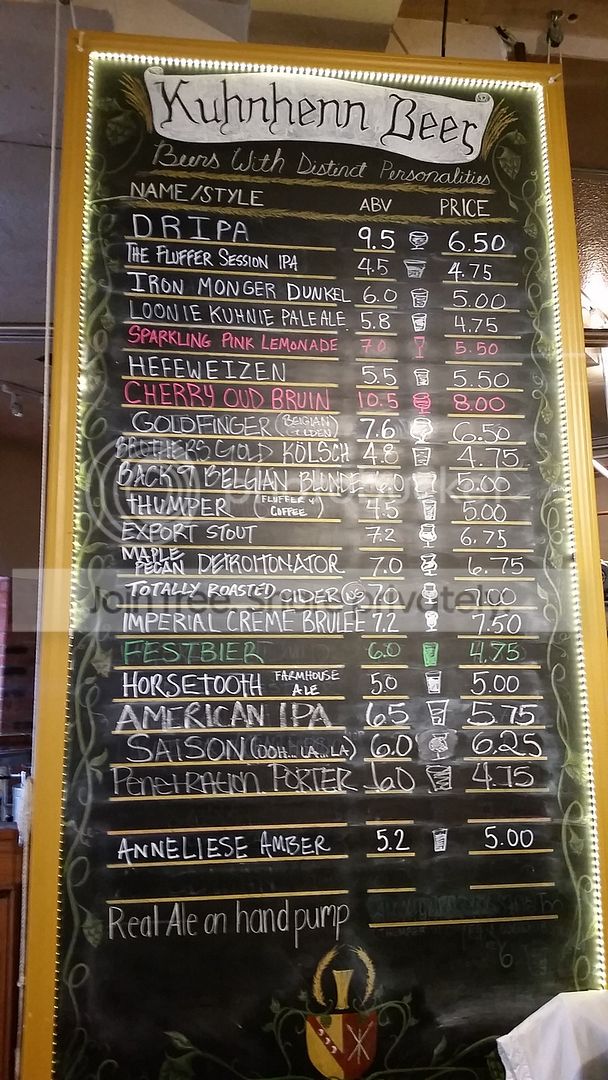 Kuhnhenn Beer
Beers With Distinct Personalities
NAME/STYLE ABV PRICE
DRIPA 9.5 6.50
THE FLUFFER SESSION IPA 4.5 4.75
IRON MONGER DUNKEL 6.0 5.00
LOONIE KUHNIE PALE ALE 5.8 4.75
SPARKLING PINK LEMONADE 7.0 5.50
HEFEWEIZEN 5.5 5.50
CHERRY OUD BRUIN 10.5 8.00
GOLDFINGER (BELGIAN GOLDEN) 7.6 6.50
BROTHERS GOLD KÖLSCH 4.8 4.75
BACK 9 BELGIAN BLONDE 6.0 5.00
THUMPER (FLUFFER Y COFFEE) 4.5 5.00
EXPORT STOUT 7.2 6.75
MAPLE PECAN DETROITONATOR 7.0 6.75
TOTALLY ROASTED CIDER NS 7.0
IMPERIAL CREME BRULEE 7.2 7.50
FESTBIER 6.0 4.75
HORSETOOTH FARMHOUSE ALE 5.0 5.00
AMERICAN IPA 6.5 5.75
SAISON (OOH...LA...LA) 6.0 6.25
Penetration PORTER 6.0 4.75
ANNELIESE AMBER 5.2 5.00
Real Ale on hand pump